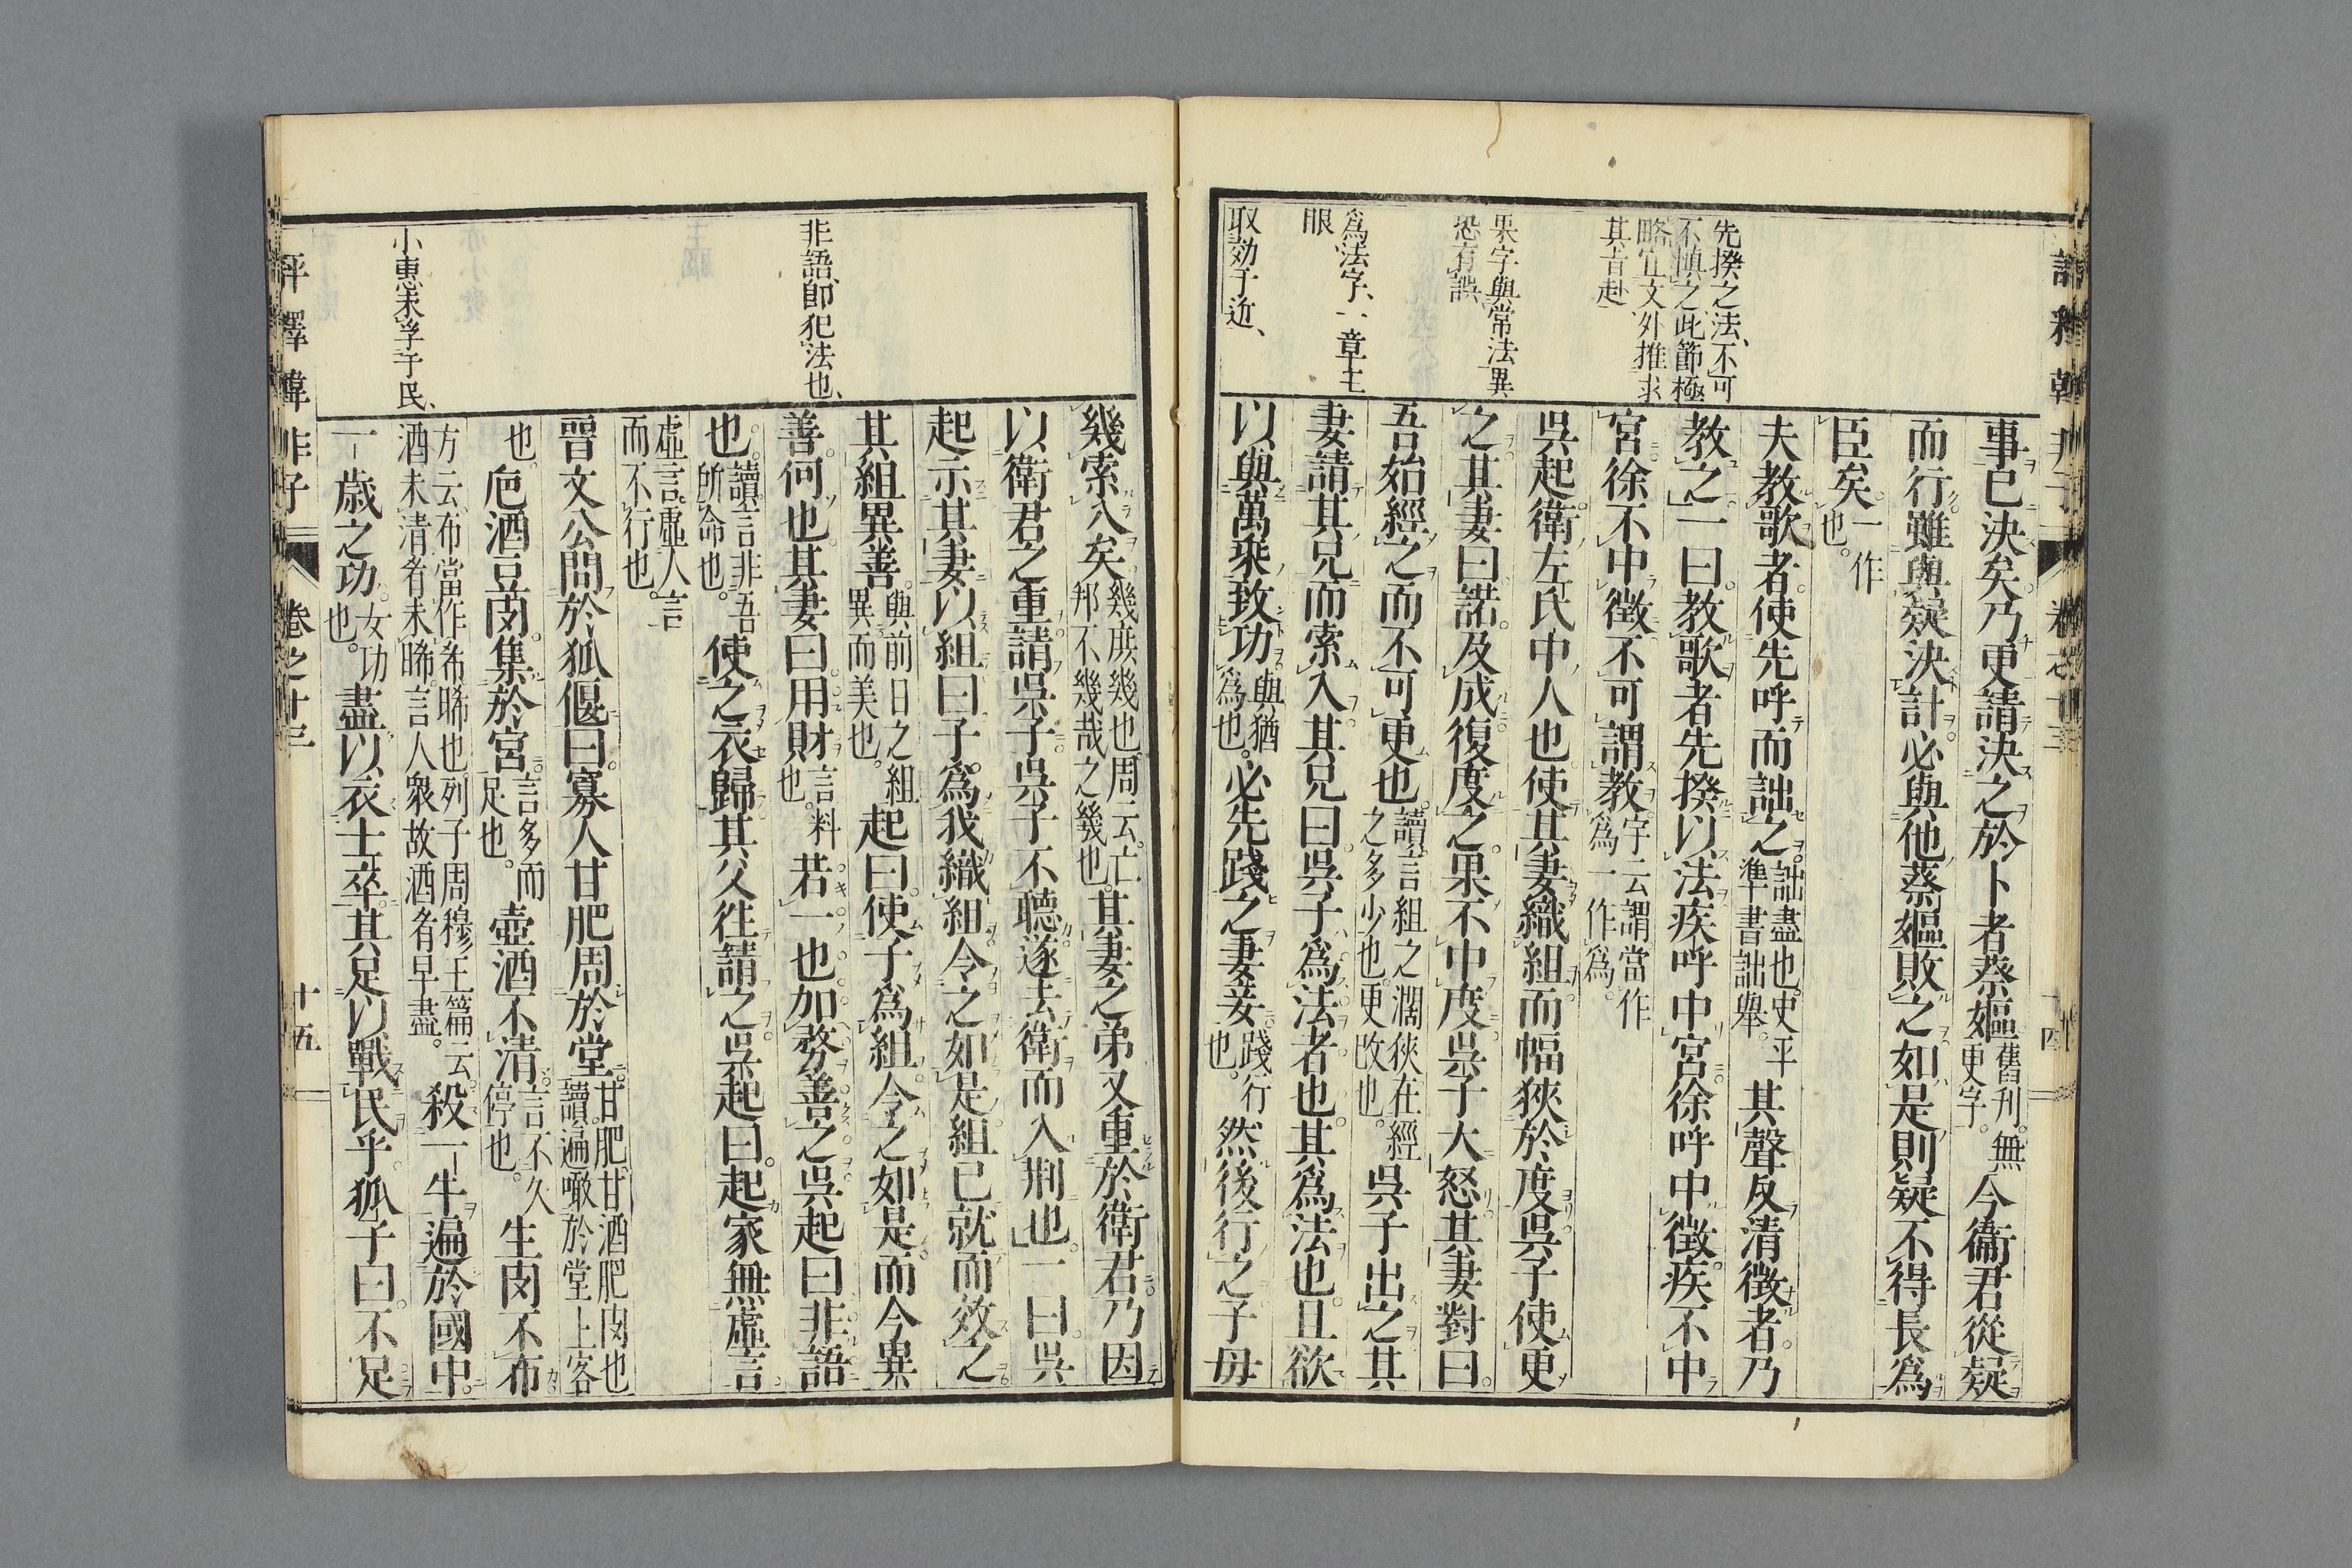 先揆之法、不可
不慎之、此節極
略、宜文外推求
其旨赴、
果字與常法異
恐有誤、
爲法字、一章主
眼
取効于近、
事已決矣乃更請決之於卜者蔡嫗舊刋無更字。今衞君從疑
而行雖與疑決計必與他蔡嫗敗之如是則疑不得長爲
臣矣一作也。
夫教歌者使先呼而詘之詘盡也史平準書詘舉。其聲反清徵者乃
教之一曰教歌者先揆以法疾呼中宮徐呼中徵疾不中
宮徐不中徵不可謂教宇云謂當作爲一作爲。
吳起衛左氏中人也使其妻織組而幅狹於度吳子使更
之其妻曰諾及成復度之果不中度吳子大怒其妻對曰
吾始經之而不可更也讀言組之濶狹在經之多少也更改也。吳子出之其
妻請其兄而索入其兄曰吳子爲法者也其爲法也且欲
以與萬乘致功與猶爲也。必先踐之妻妾踐行也。然後行之子毋
評釋韓非子
卷之十三
十四
非語、即犯法也、
小惠未孚于民、
幾索入矣幾庶幾也周云亡邦不幾哉之幾也其妻之弟又重於衛君乃因
以衛君之重請吳子吳子不聽遂去衛而入荆也一曰吳
起示其妻以組曰子爲我織組令之如是組已就而效之
其組異善與前日之組異而美也。起曰使子爲組令之如是而今異
善何也其妻曰用財言料也。若一也加務善之吳起曰非語
也。讀言非吾所命也。使之衣歸其父徃請之吳起曰起家無虛言
虛言。虛人言而不行也。
晉文公問於狐偃曰寡人甘肥周於堂甘肥甘酒肥肉也讀遍噉於堂上客
也。巵酒豆肉集於宮言多而足也。壺酒不清言不久停也。生肉不布
方云布當作希晞也列子周穆王篇云酒未清肴未晞言人衆故酒肴早盡。殺一牛遍於國中
一歲之功女功也。盡以衣士卒其足以戰民乎狐子曰不足
評釋韓非子
卷之十三
十五